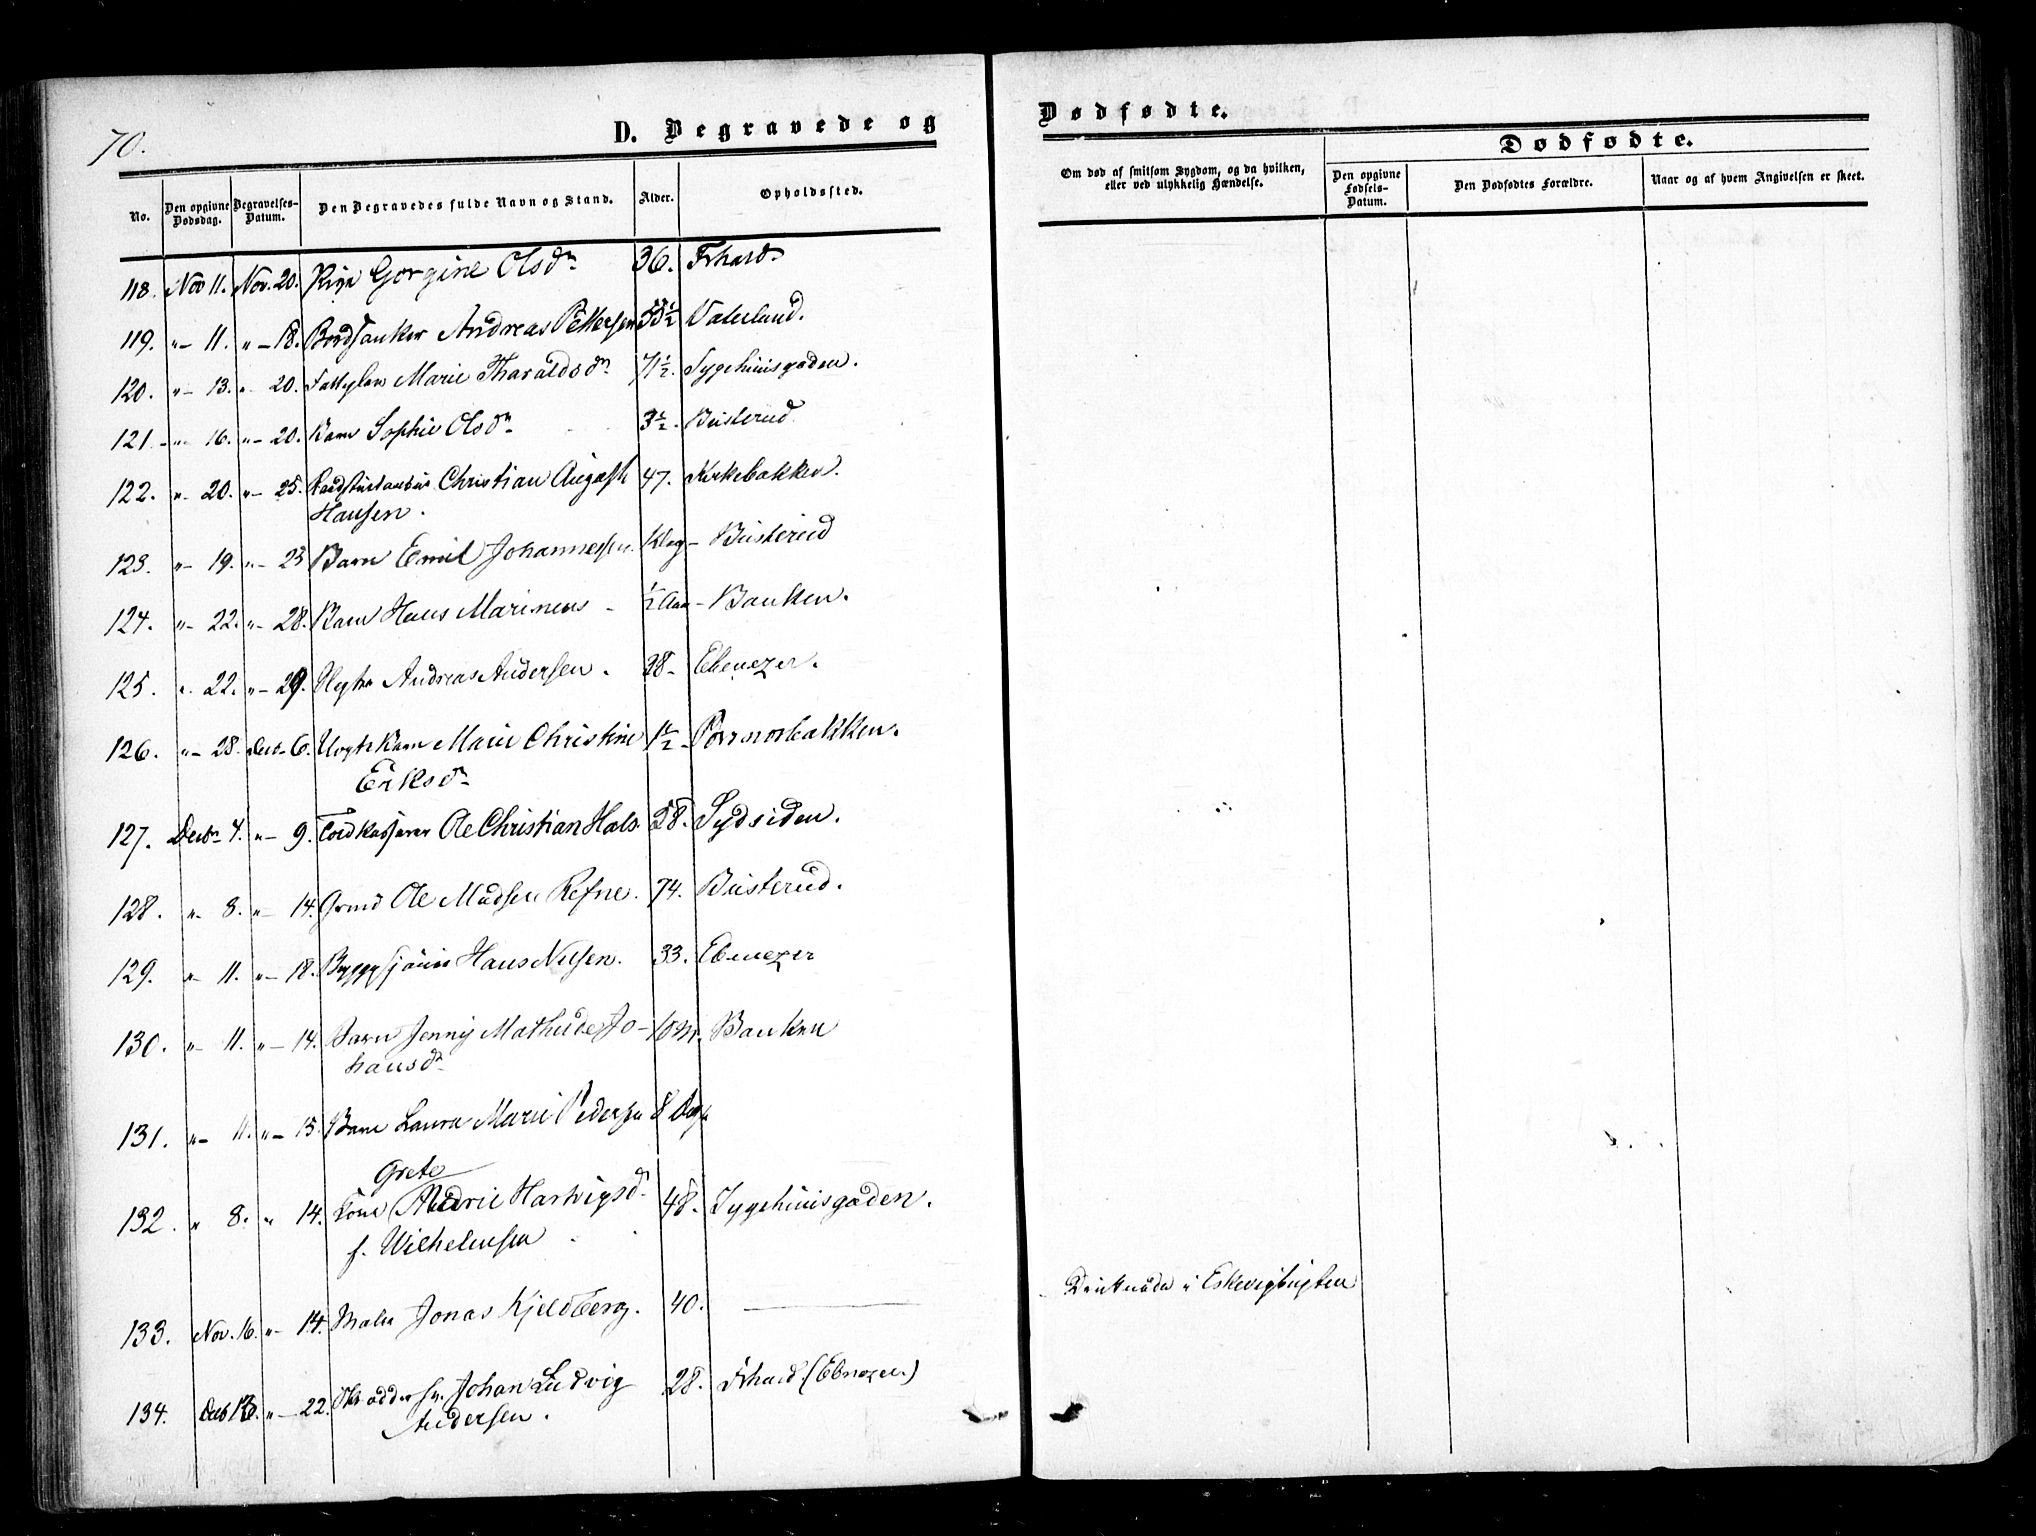 70.
D. Begravede og
No. Den opgivne Dødsdag. Begravelses-Datum. Den Begravedes fulde Navn og Stand. Alder. Opholdssted.
118. Nov 11. Nov. 20. Pige Gorgine Olsdr 36. Frhard
119. " 11. " 18. Andreas Pettersen 55½ Vaterland.
120. " 13. " 20. Fattiglem Marie Tharaldsdr 71½. Sygehuusgaden.
121. " 16. " 20. Barn Sophie Olsdr 3½. Busterud
122. " 20. " 25. Christian August 47. Kirkebakken.
Hansen.
123. " 19. " 23 Barn Emil Johannessen. Busterud
124. " 22. " 28. Barn Hans Marinius ½ Aar Banken.
125. " 22. " 29. Ugte Andreas Andersen. 28 Ebenezer.
126. " 28. Decb. 6. Uegte Barn Marie Christine 1½ Pormorbakken.
Eriksdr
127. Decbr 4. " 9. Toldkasserer Ole Christian Hals. 58. Sydsiden.
128. " 8. " 14. Grmd Ole Madsen Refne. 74. Busterud.
129. " 11. " 18. Hans Nilsen. 33. Ebenezer
130. " 11. " 14. Barn Jenny Mathilde Jo- 10 M. Banken
hansdr
131. " 11. " 15. Barn Laura Marie Pedersen 8 Dage
Grete
132. " 8. " 14. Kone Marie Hartvigsdr 48. Sygehuusgaden.
f. Wilhelmsen
133. Nov. 16. " 14. Maler Jonas Kjeldberg. 40. —
134. Decb 13. " 22. Skrædder sv. Johan Ludvig 28. Frhard (Ebnezer)
Andersen.
Dødfødte.
Om død af smitsom Sygdom, og da hvilken, eller ved ulykkelig Hændelse.
Dødfødte.
Den opgivne Fødsels-Datum. Den Dødfødtes Forældre. Naar og af hvem Angivelsen er skeet.
Druknede i Eskevigbugten